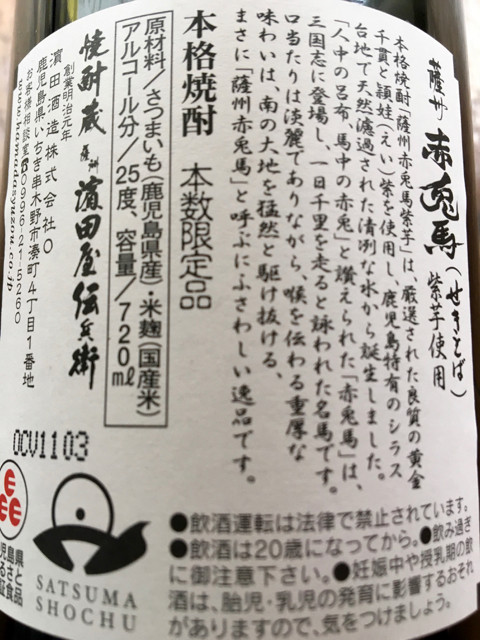 薩州 赤兎馬(せきとば)
紫芋使用
本格焼酎「薩州赤兎馬紫芋」は、厳選された良質の黄金
千貫と頴娃(えい)紫を使用し、鹿児島特有のシラス
台地で天然濾過された清冽な水から誕生しました。
「人中の呂布、馬中の赤兎」と讃えられた「赤兎馬」は、
三国志に登場し、一日千里を走ると詠われた名馬です。
口当たりは淡麗でありながら、喉を伝わる重厚な
味わいは、南の大地を猛然と駆け抜ける、
まさに「薩州赤兎馬」と呼ぶにふさわしい逸品です。
本格焼酎 本数限定品
原材料/さつまいも(鹿児島県産)・米麹(国産米)
アルコール分/25度、容量/720ml
焼酎蔵 薩洲 濵田屋伝兵衛
創業明治元年
濵田酒造株式会社
鹿児島県いちき串木野市湊町4丁目1番地
お客様相談室☎0996-21-5260
www.hamadasyuzou.co.jp
OCV1103
SATSUMA
SHOCHU
児島県
るさと
証食品
●飲酒運転は法律で禁止されています。
●飲酒は20歳になってから。●飲み過ぎ
に御注意下さい。●妊娠中や授乳期の飲
酒は、胎児・乳児の発育に影響するおそれ
がありますので、気をつけましょう。